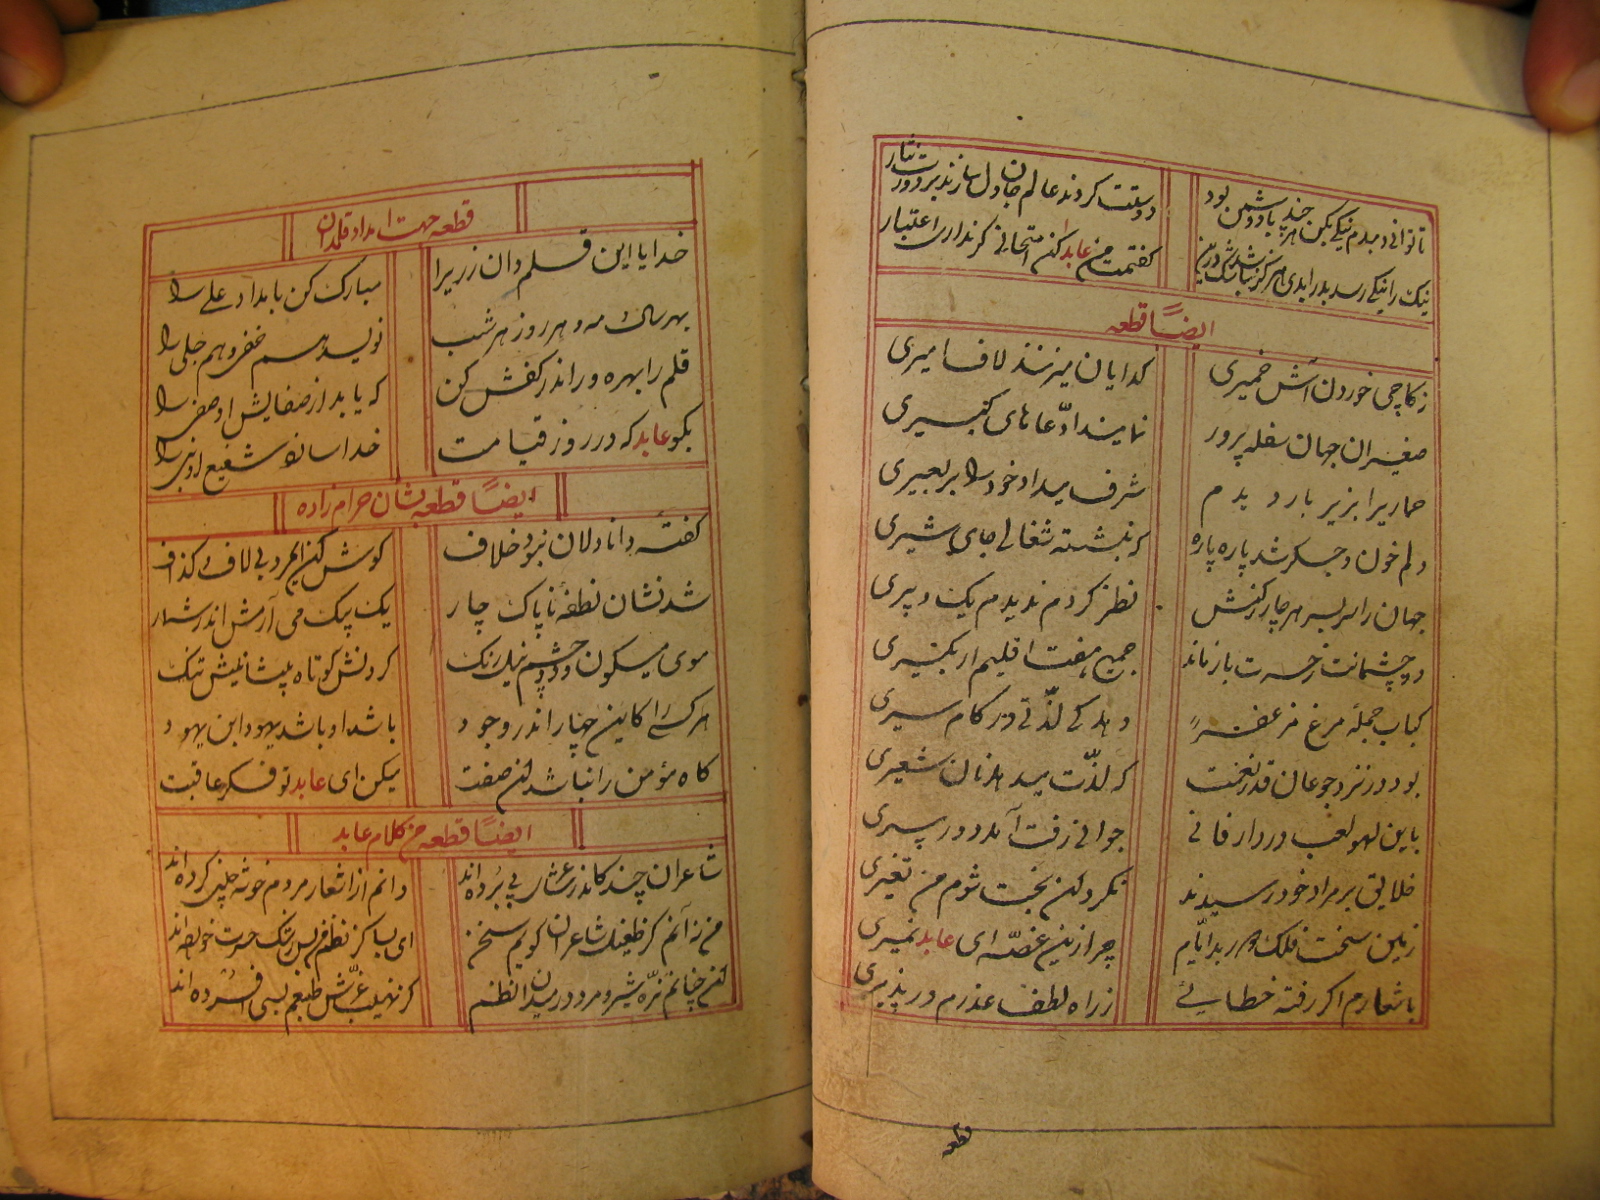 تا توانی دمبدم نیکی بکن هر چند با دشمن بود دوستت کردند عالم جان و دل سازند بر دورت نثار
نیک را نیکی رسد بد را بدی هرگز نباشد گفتمت من عابد کن امتحانی گر نداری اعتبار
ایضاً قطعه
ز کاچی خوردن آش خمیری کدایان میزنند لاف امیری
صغیران جهان سفله پرور نمایند ادّعاهای کبیری
حماریرا بزیر بار دیدم شرف میداد خود را بر بعیری
دلم خون و جگر شد پاره پاره که بنشسته شغالی جای شیری
جهان را سربسر هر چار رکنش نظر کردم ندیدم یک دبیری
دو چشمانت ز حسرت باز ماند جمیع هفت اقلیم ار بگیری
کباب جمله مرغ مزعفر دهد کی لذّتی در کام سیری
بود در نزد جوعان قدر نعمت که لذّت میدهد نان شعیری
باین لهو لعب در دار فانی جوانی رفت آمد دور پیری
خلایق بر مراد خود رسیدند نکرد این بخت شوم من تغیری
زمین سخت فلک دور بد ایّام چرا زین غصّه ای عابد نمیری
باشعارم اکر رفته خطائی ز راه لطف عذرم در پذیری
قطعه
قطعه جهت امداد قلمدان
خدایا این قلمدان زریرا مبارک کن بامداد علی را
بهر سال مه و هر روز هر شب نویسد هم خفی و هم جلی را
قلم را بهره ور اندر کفش کن که یابد از صفایش او صفی را
بکو عابد که در روز قیامت خدا سازد شفیع او نبی را
ایضاً قطعه بشان حرام زاده
کفتهٔ دانا دلان نبود خلاف کوش کن ایمرد بی لاف کذاف
شد نشان نطفهٔ ناپاک چار یک بیک می آرمش اندر شمار
موی میکون و دو چشم نیل رنک کردنش کوتاه پیشانیش تنک
هر کسی را کاین چهار اندر وجود باشد او باشد یهود ابن یهود
کاه مؤمن را نباشد این صفت لیکن ای عابد تو فکر عاقبت
ایضاً قطعه من کلام عابد
شاعران چند کاندر عشار پی بُرده اند دانم از اشعار مردم خوشه چینی کرده اند
من نه آنم کز طعنیک شاعران کویم سخن ای بسا کز نظم من بس رشک حسرت خورده اند
این چنانم نرّه شیر و مرد در میدان نظم کز نهیب غرّش طبعم بسی افسرده اند